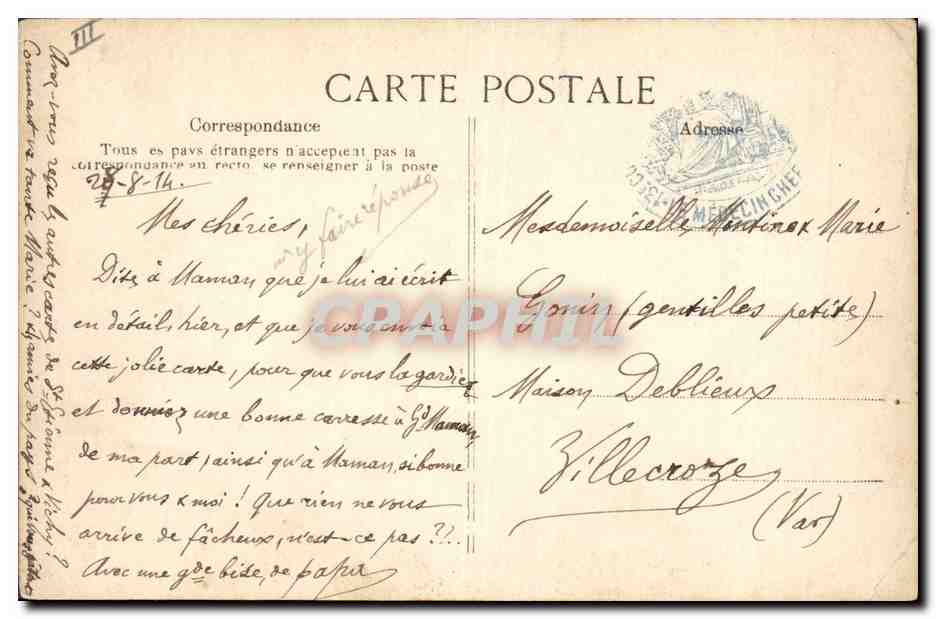 III
CARTE POSTALE
Correspondance
Tous les pays étrangers n'acceptent pas la
correspondance au recto, se renseigner à la poste
28-8-14.
Mes chéries,
y faire réponse
Dites à Maman que je lui ai écrit
en détails hier, et que je vous envoie
cette jolie carte, pour que vous la gardiez
et donniez une bonne carresse à Gd Maman,
de ma part, ainsi qu'à Maman, si bonne
pour vous & moi! Que rien ne vous
arrive de fâcheux, n'est-ce pas??..
Avec une gde bise, de papa
Avez-vous reçu les autres cartes de St Etienne & Vichy?
Comment va tante Marie? du pays?
Adresse
MÉDECIN CHEF
Mesdemoiselles & Marie
Gonin (gentilles petites)
Maison Deblieux
Villecroze
(Var)
CPAPHIL